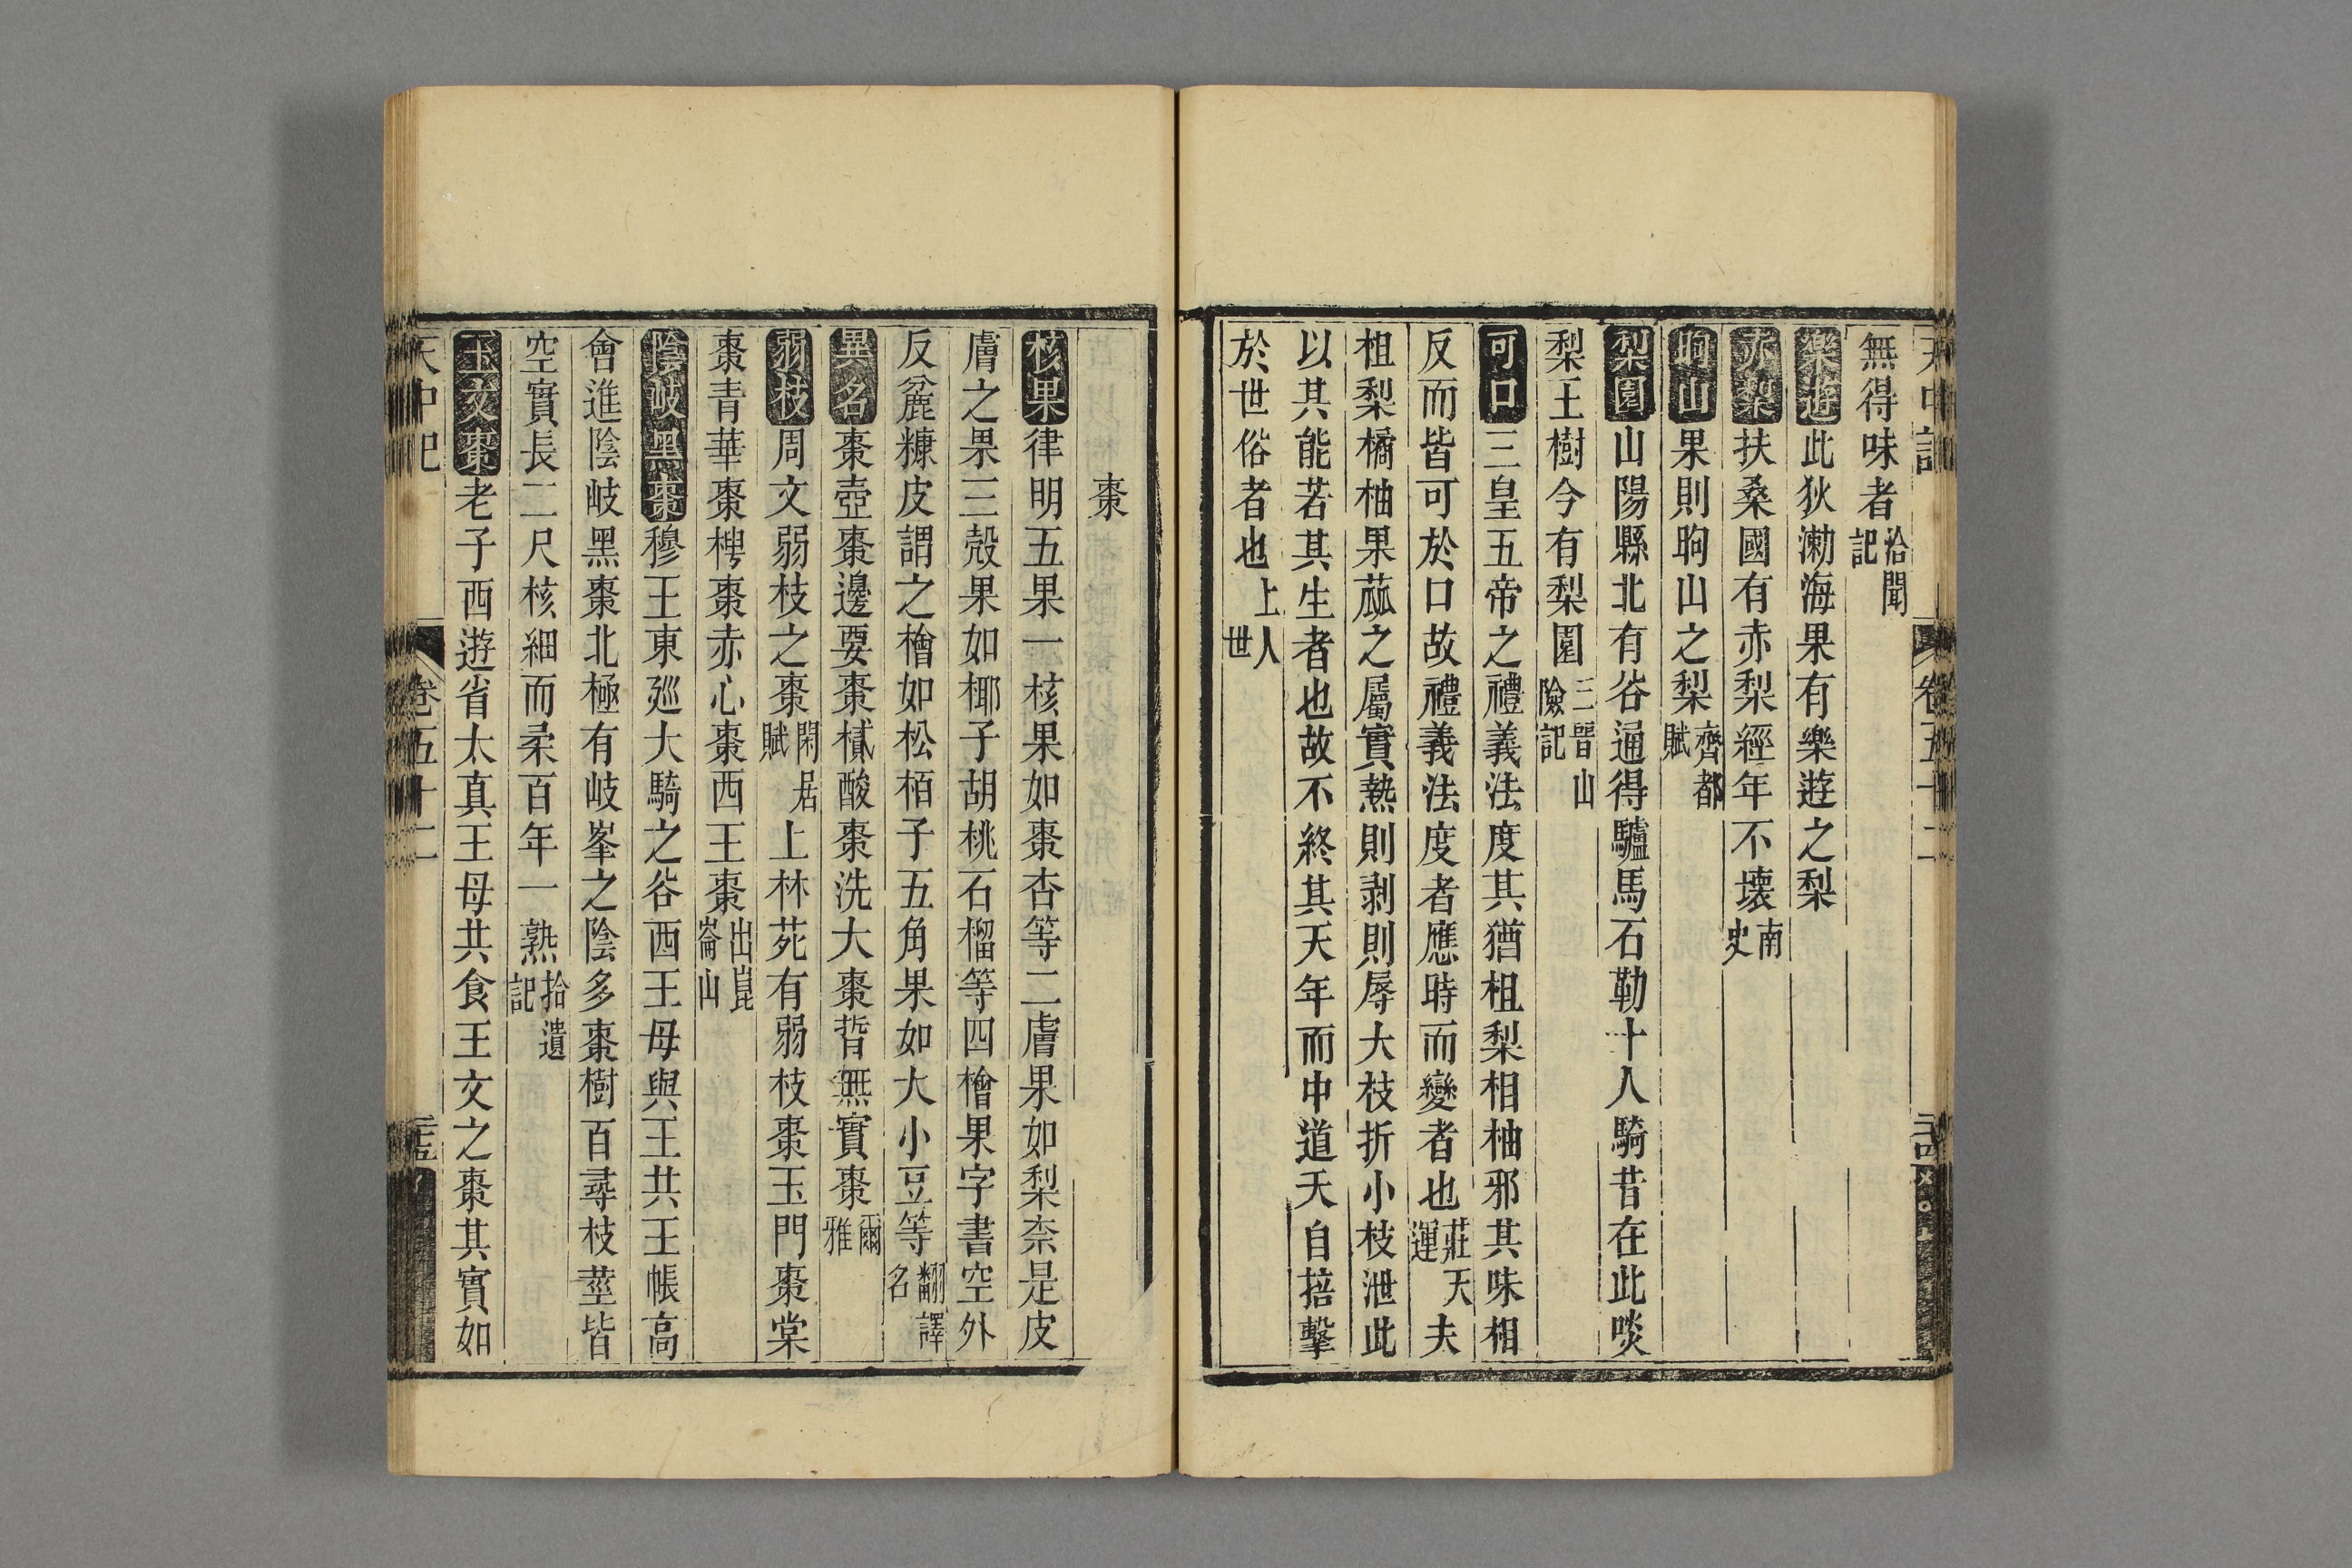 天中記
卷五十二
無得味者洽聞記
樂遊此狄漷海果有樂遊之梨
赤梨扶桑國有赤梨經年不壞南史
昫山果則昫山之梨齊都賦
梨園山陽縣北有谷通得驢馬石勒十人騎昔在此啖
梨王樹今有梨園三晉山險記
可口三皇五帝之禮義法度其猶柤梨相柚邪其味相
反而皆可於口故禮義法度者應時而變者也莊天運夫
柤梨橘柚果蓏之屬實熱則剥則辱大枝折小枝泄此
以其能若其生者也故不終其天年而中道夭自掊擊
於世俗者也上人世
棗
核果律明五果一核果如棗杏等二膚果如梨柰是皮
膚之果三殼果如椰子胡桃石榴等四檜果字書空外
反麄糠皮謂之檜如松栢子五角果如大小豆等翻譯名
異名棗壺棗邊要棗樲酸棗洗大棗晳無實棗爾雅
弱枝周文弱枝之棗閑居賦上林苑有弱枝棗玉門棗棠
棗青華棗梬棗赤心棗西王棗出崑崙山
陰岐黑棗穆王東廵大騎之谷西王母與王共玉帳高
會進陰岐黑棗北極有岐峯之陰多棗樹百尋枝莖皆
空實長二尺核細而柔百年一熟拾遺記
玉文棗老子西遊省太真王母共食玉文之棗其實如
天中記
卷五十二